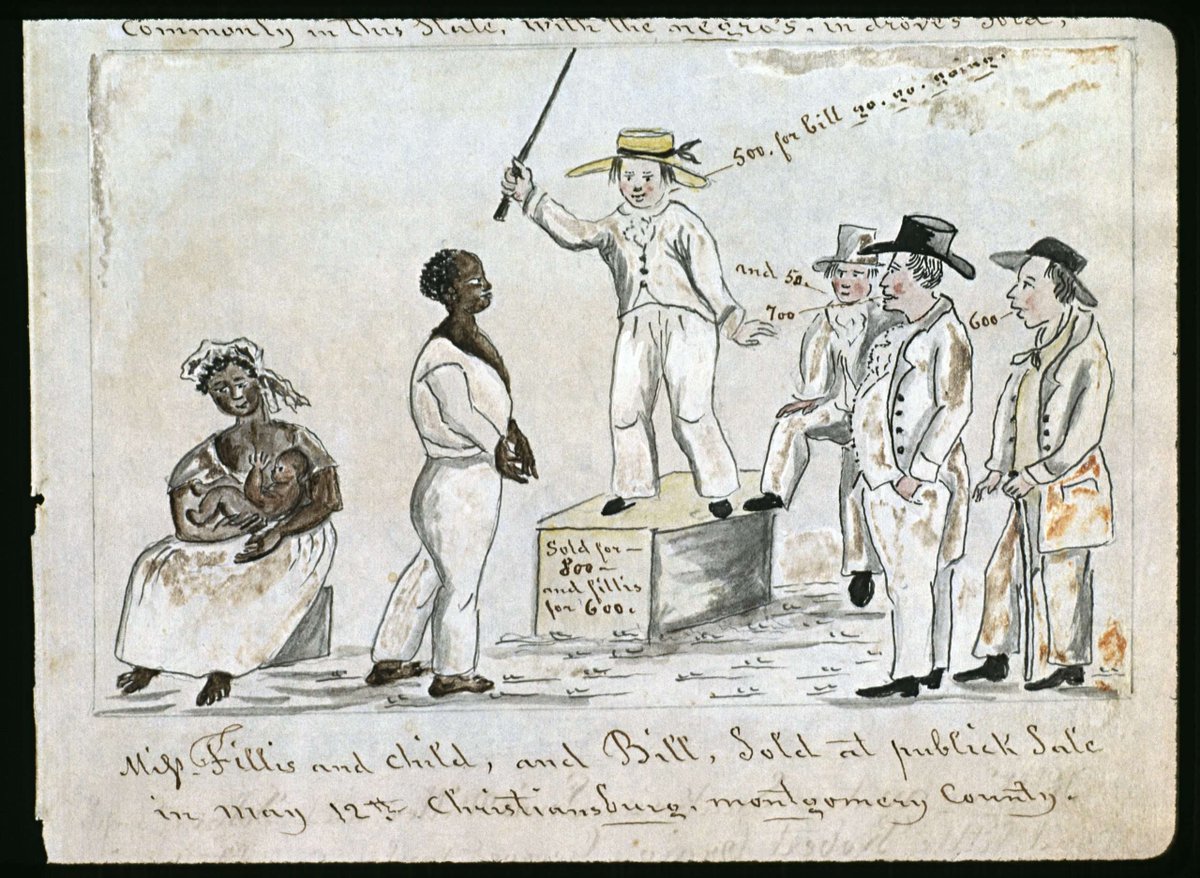 Commonly in this State, with the negro's, in droves Sold,
500. for bill go. go. going.
and 50.
700
600
Sold for —
800 —
and fillis
for 600.
Miss Fillis and child, and Bill, Sold at publick Sale
in May 12th Christiansburg, montgomery County.